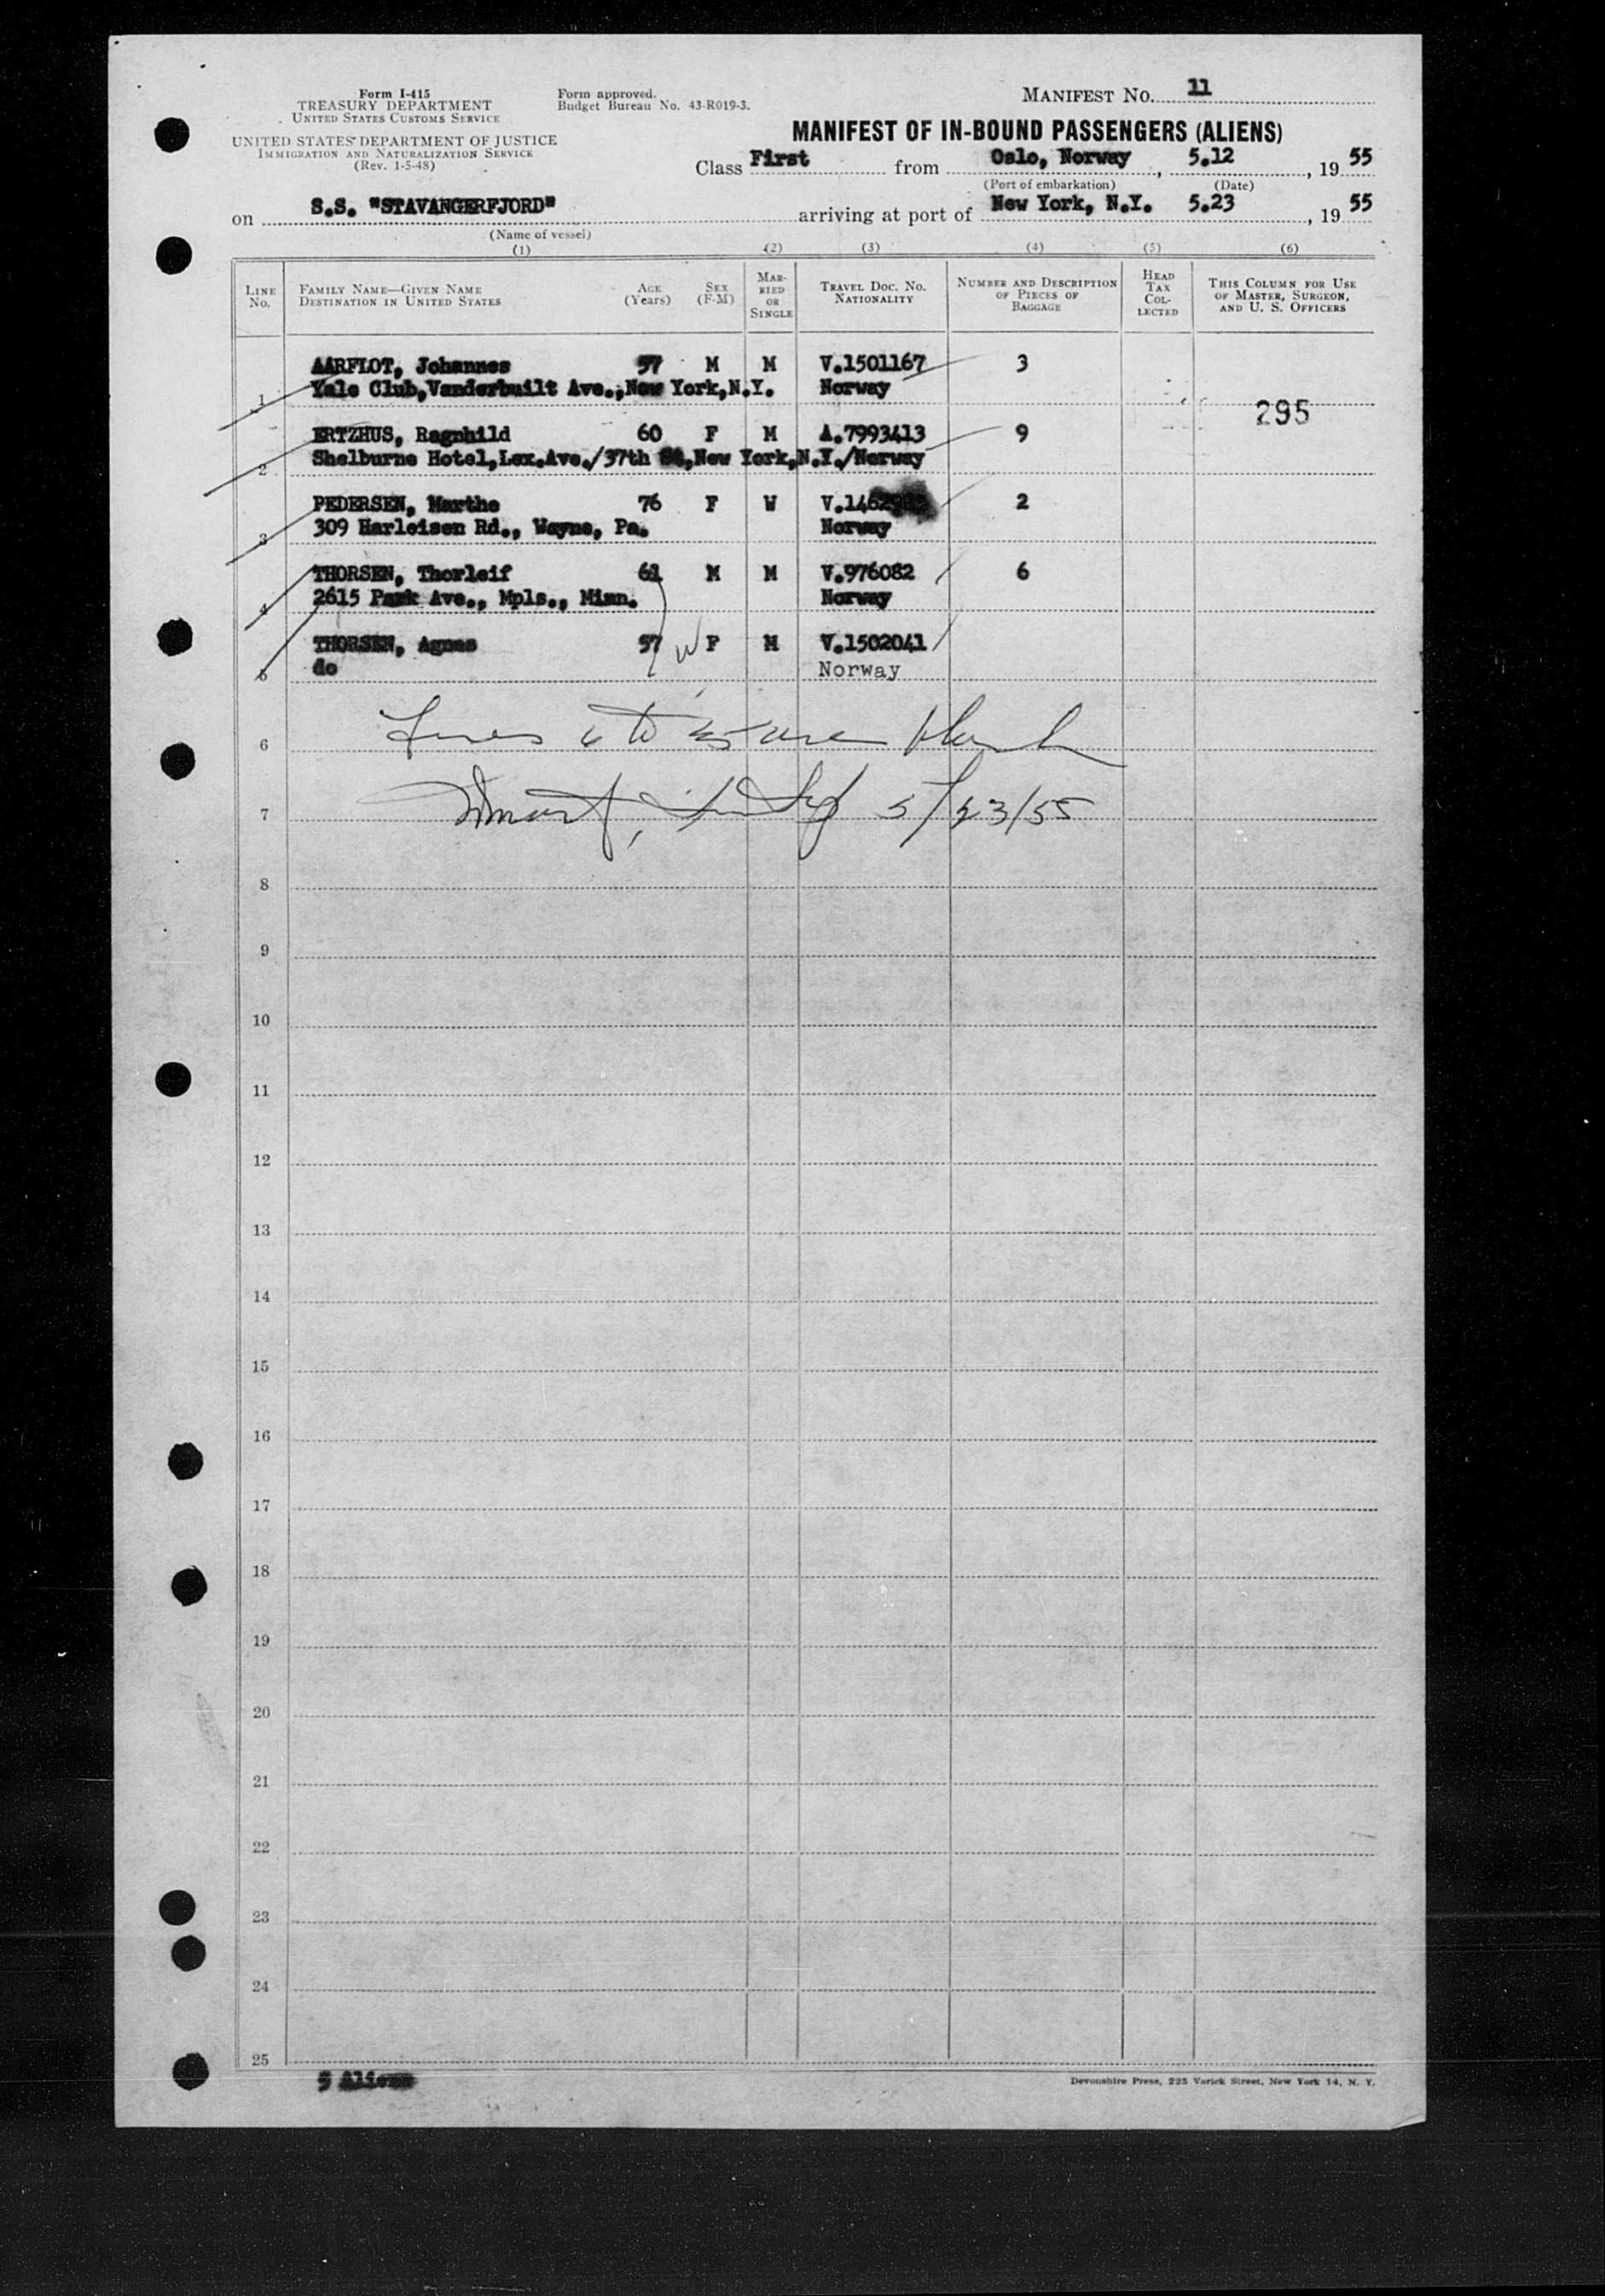 Form I-415
TREASURY DEPARTMENT
UNITED STATES CUSTOMS SERVICE
UNITED STATES DEPARTMENT OF JUSTICE
IMMIGRATION AND NATURALIZATION SERVICE
(Rev. 1-5-48)
Form approved.
Budget Bureau No. 43-R019-3.
MANIFEST NO. 11
MANIFEST OF IN-BOUND PASSENGERS (ALIENS)
Class First from Oslo, Norway, 5.12, 19 55
(Port of embarkation) (Date)
on S.S. "STAVANGERFJORD" arriving at port of New York, N.Y. 5.23, 19 55
(Name of vessel)
(1) (2) (3) (4) (5) (6)
LINE No. FAMILY NAME—GIVEN NAME DESTINATION IN UNITED STATES AGE (Years) SEX (F-M) MARRIED OR SINGLE TRAVEL DOC. NO. NATIONALITY NUMBER AND DESCRIPTION OF PIECES OF BAGGAGE HEAD TAX COLLECTED THIS COLUMN FOR USE OF MASTER, SURGEON, AND U. S. OFFICERS
AARFLOT, Johannes 57 M M V.1501167 3
1 Yale Club,Vanderbuilt Ave.,New York,N.Y. Norway
295
ERTZHUS, Ragnhild 60 F M A.7993413 9
2 Shelburne Hotel,Lex.Ave./37th St,New York,N.Y./Norway
PEDERSEN, Marthe 76 F W 2
3 309 Harleisen Rd., Wayne, Pa. Norway
THORSEN, Thorleif 61 M M V.976082 6
4 2615 Park Ave., Mpls., Minn. Norway
THORSEN, Agnes 57 W F M V.1502041
5 do Norway
6 Lines 6 to 25 are blank
7 5/23/55
8
9
10
11
12
13
14
15
16
17
18
19
20
21
22
23
24
25
5 Aliens
Devonshire Press, 225 Varick Street, New York 14, N. Y.